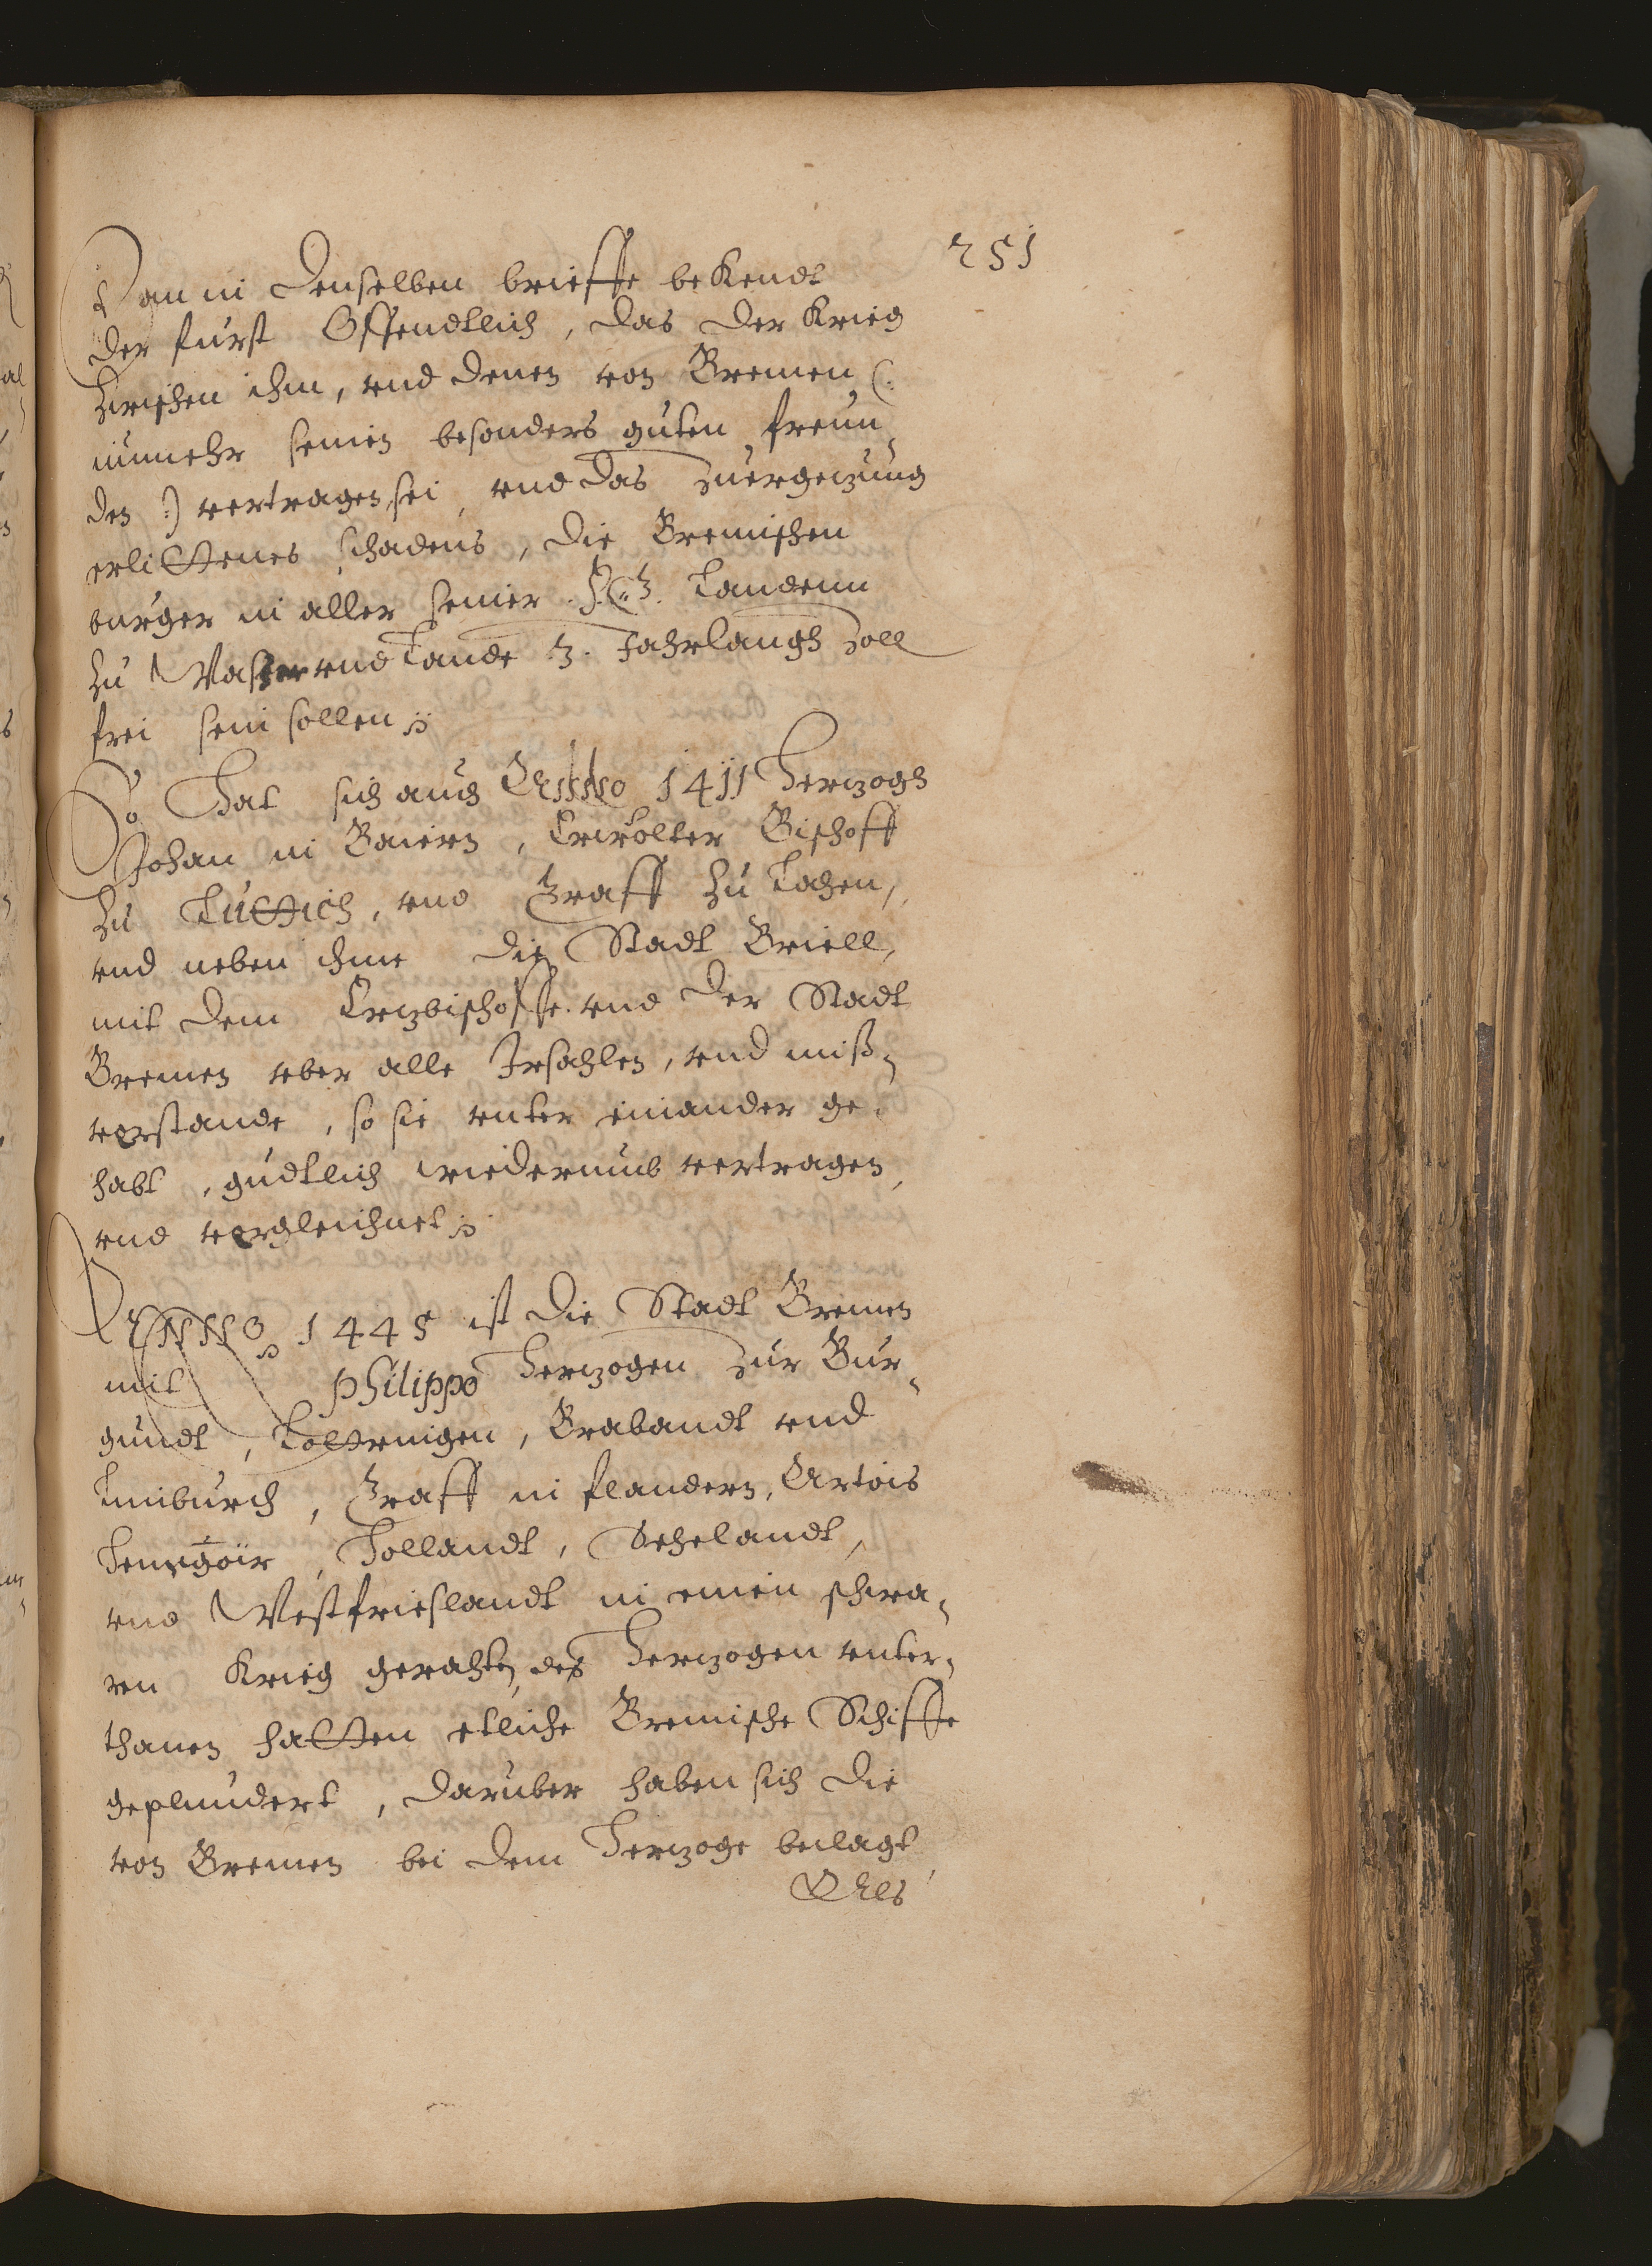 251
Dan in denselben brieffe bekendt
der furst Offendtlich, das der Krieg
zwischen ihm, vnd denen von Bremen (:
nunmehr seinen besonders guten freun¬
den :) vertragen sei, vnd das zuergezung
erlittenes schadens, die Bremischen
burger in aller seiner f. G. Landenn
zu Wasser vnd Lande 3. Jahrlangh Zoll
frei sein sollen
So Hat sich auch Anno 1411 Hertzogh
Johan in Baiern, Erwolter Bischoff
zu Luttich, vnd Graff zu Lohen,
vnd neben ihme die Stadt Briell,
mit dem Ertzbischoffe vnd der Stadt
Bremen vber alle Irsahlen, vnd miß¬
verstande, so sie vnter einander ge¬
habt, gudtlich wiederumb vertragen,
vnd vergleichnet
ANNO 1445 ist die Stadt Bremen
mit Philippo Hertzogen zur Bur¬
gundt, Lottringen, Brabandt vnd
Limburch, Graff in flandern, Artois
Hennegöir, Hollandt, Sehelandt,
vnd Westfrieslandt in einen schwa¬
ren Krieg gerahten, des Hertzogen vnter¬
thanen hatten etliche Bremische Schiffe
geplundert, daruber haben sich die
von Bremen bei dem Hertzoge beclagt,
Als